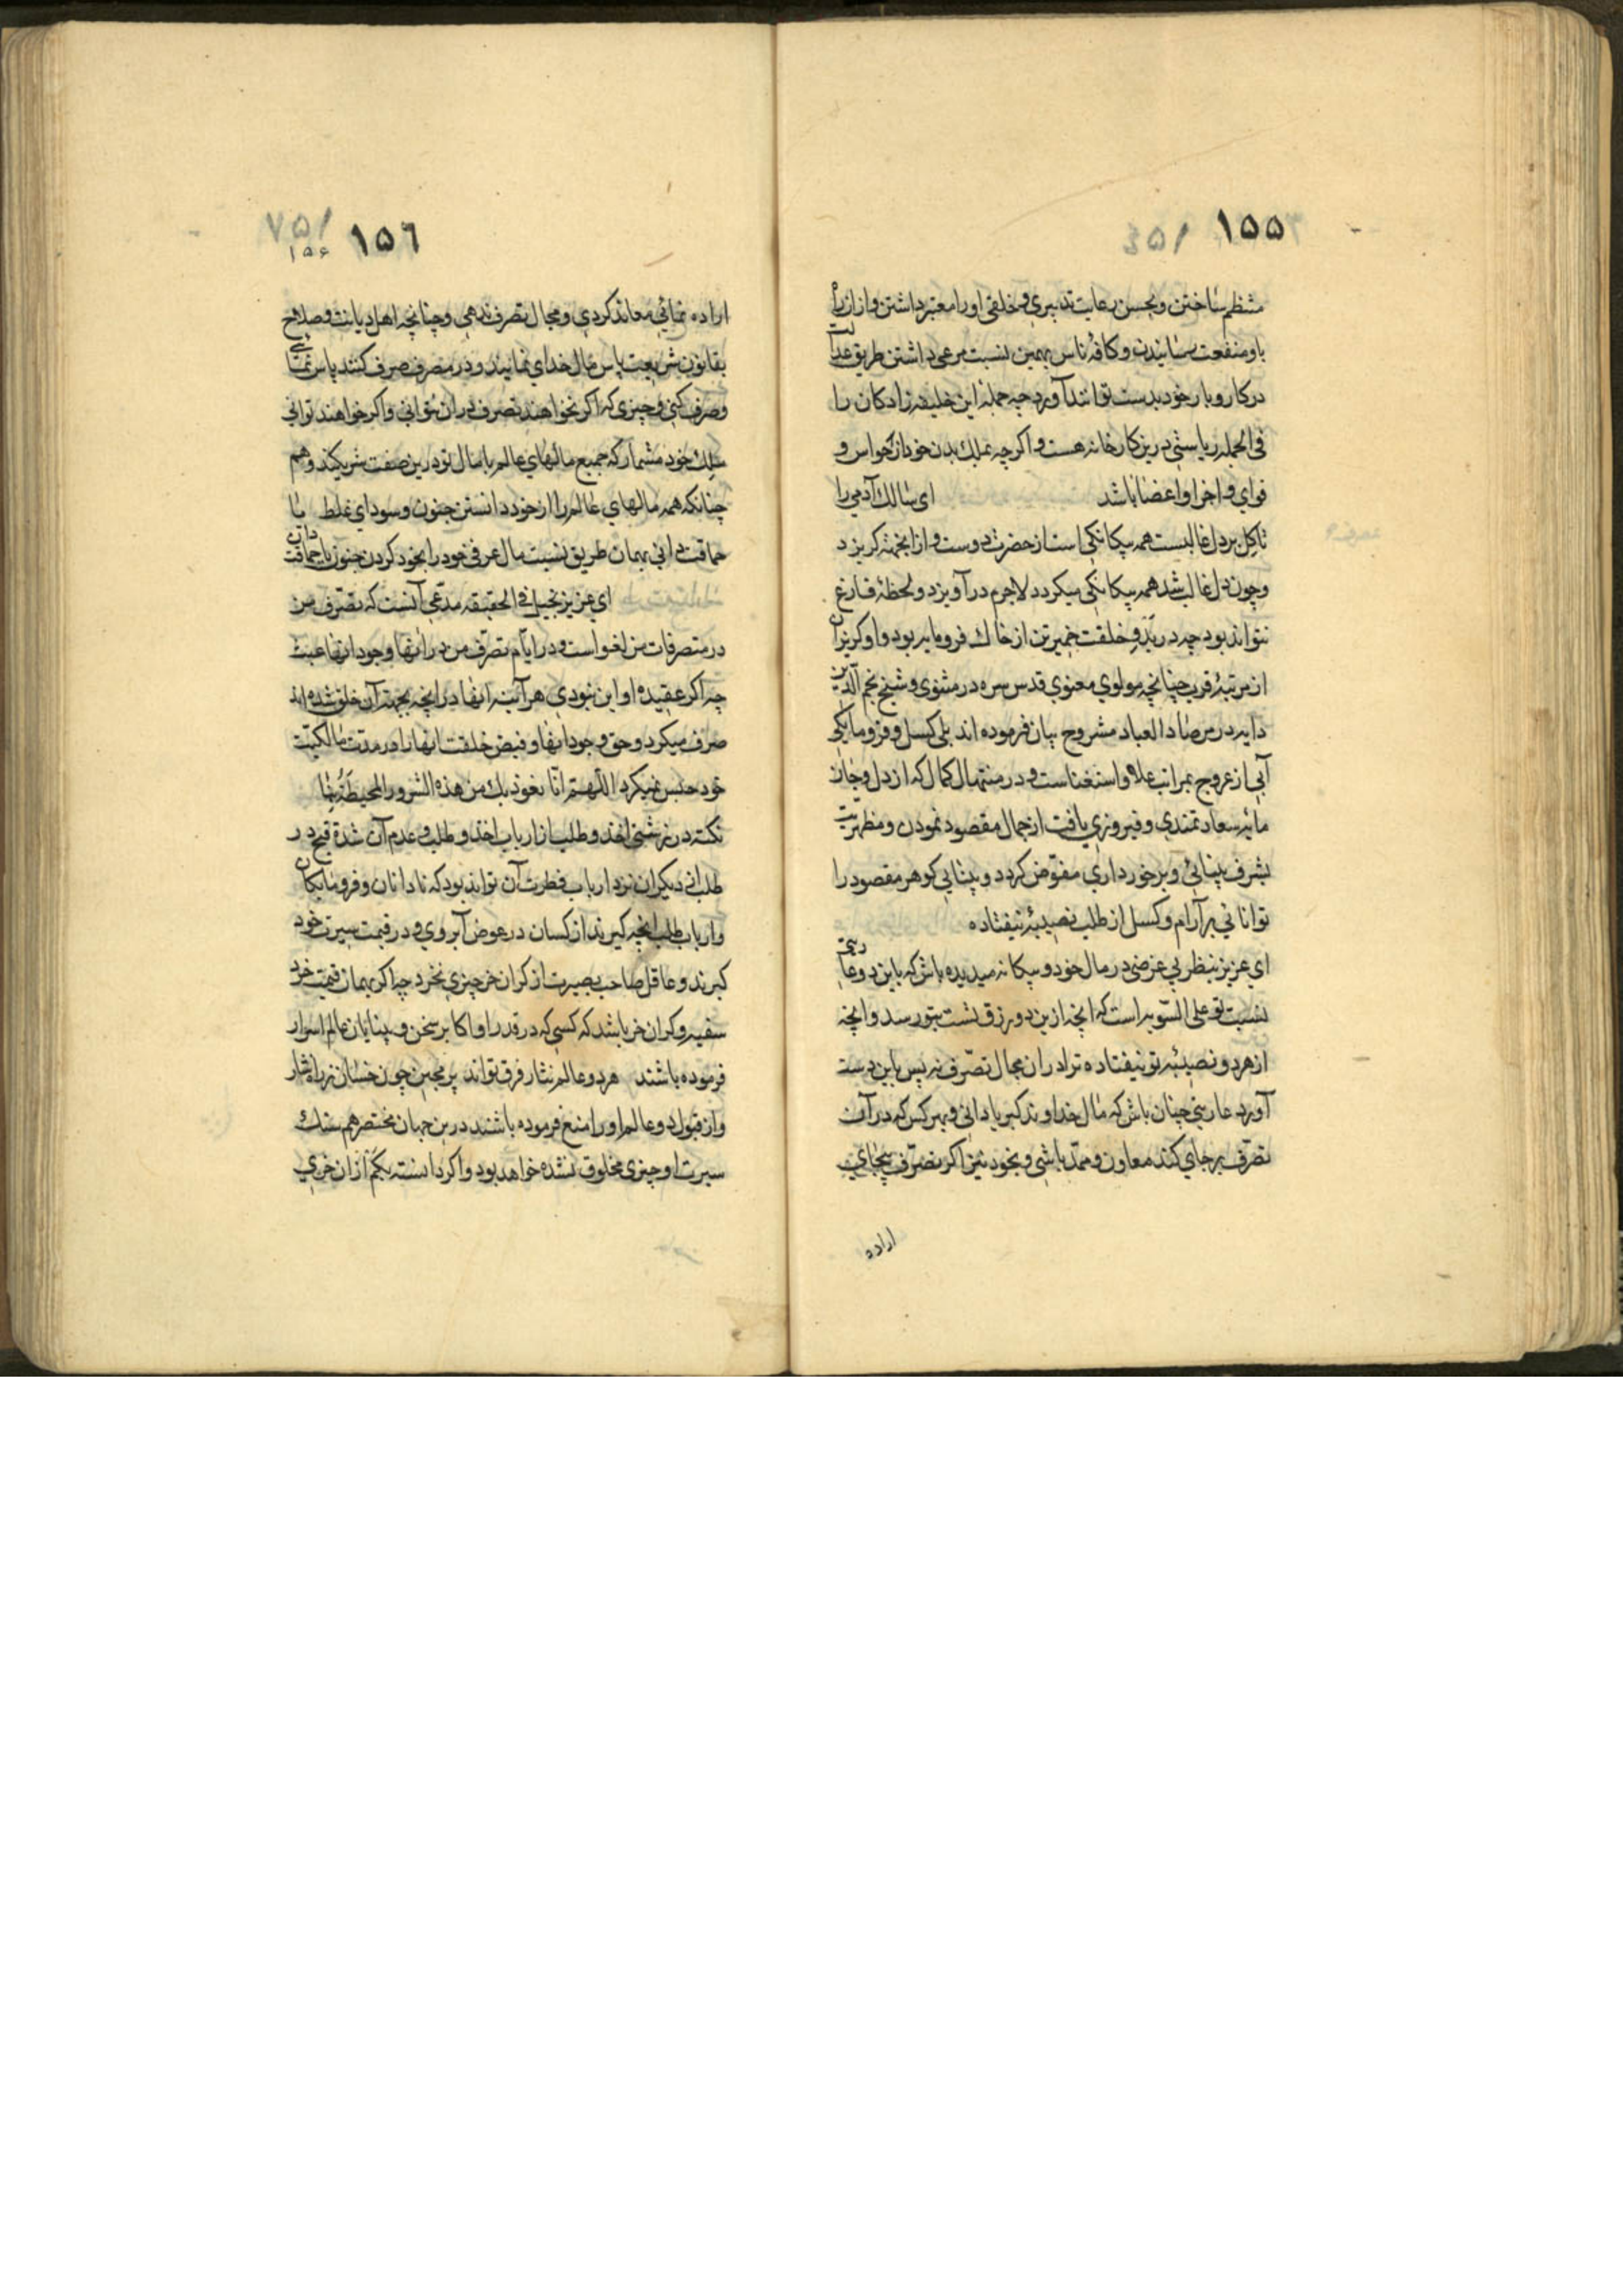 ١٥٥
منتظم ساختن و بحسن رعایت تدبیری و خلقی او را معتبر داشتن و ازان راه
باو منفعت رسانیدن و کافهٔ ناس بهمین نسبت مرعی داشتن طریق عدالت
در کار و بار خود بدست توانند آورد چه جملهٔ این خلیفه زادکان را
فی الجمله ریاستی درین کارخانه هست و اکرچه بملک بدن خود از حواس و
قوای و اجزا و اعضا باشد ای سالک آدمی را
تا کل بر دل غالبست همه بیکانکی است از حضرت دوست و از انجهته کریزد
و چون دل غالب شد همه یکانکی میکردد لاجرم در آویزد و لحظهٔ فارغ
نتواند بود چه در بدو خلقت خمیر تن از خاک فرومایه بود و او کریزان
از مرتبهٔ قرب چنانچه مولوی معنوی قدس سره در مثنوی و شیخ نجم الدین
دایه در مرصاد العباد مشروح بیان فرموده اند بلی کسل و فرومایکی
آبی از عروج بمراتب علا و استغناست و در منتهال کمال که از دل و جان
مایهٔ سعادتمندی و فیروزی یافت از جمال مقصود نمودن و مظهریت
بشرف بینائی و برخورداری مفوّض کردد و بینایی کوهر مقصود را
توانائی بر آرام و کسل از طلب نصیبهٔ نیفتاده
ای عزیز بنظر بی غرضی در مال خود و بیکانه میدیده باش که باین دو عارضی
نسبت تو علی السّویه است که انچه ازین دو رزق تست بتو رسد و انچه
از هر دو نصیبهٔ تو نیفتاده ترا دران مجال تصرّف نه پس باین دست
آورد عارضی چنان باش که مال خداوند کبریا دانی و بهر کس که در آن
تصرّف برجای کند معاون و ممدّ باشی و بخود نیز اکر تصرّف بیجای
اراده
١٥٦
۱۵۶
اراده نمائی معاند کردی و مجال تصرف ندهی و چنانچه اهل دیانت و صلاح
بقانون شریعت پاس مال خدای نمایند و در مصرف صرف کنند پاس نمائی
و صرف کنی و چیزی که اکر نخواهند تصرف دران نتوانی و اکر خواهند توانی
ملک خود مشمار که جمیع مالهای عالم با مال تو درین صفت شریکند و هم
چنانکه همه مالهای عالم را از خود دانستن جنون و سودای غلط یا
حماقت دانی بهمان طریق نسبت مال عرفی خود را بخود کردن جنون یا حماقت دان
ای عزیز بخیل فی الحقیقه مدّعی آنست که تصرّف من
در متصرفات من لغو است و در ایّام تصرّف من در انها وجود انها عبث
چه اکر عقیده او این نبودی هر آینه انها در انچه بجهت آن خلق شده اند
صرف میکرد و حق وجود انها و فیض خلقت انها را در مدت مالکیّت
خود حبس نمیکرد اللّهمّ انّا نعوذ بک من هذه الشرور المحیطة بنا
نکته در زشتی اخذ و طلب از ارباب اخذ و طلب و عدم آن شدة قبح در
طلب انی دیکران نزد ارباب فطرت آن تواند بود که نادانان و فرومایکان
و ارباب طلب انچه کیرند از کسان در عوض آبروی و در قیمت سیرت خود
کیرند و عاقل صاحب بصیرت از کران خر چیزی نخرد چه اکر بهمان قیمت خرد
سفیه و کران خر باشد که کسی که در قدر او اکابر سخن و بینایان عالم اسرار
فرموده باشند هر دو عالم نثار فرق تواند بر مچین چون خسان ز راه نثار
و از قبول دو عالم او را منع فرموده باشند درین جهان مختصر هم سنک
سیرت او چیزی مخلوق نشده خواهد بود و اکر دانسته بکم ازان خری